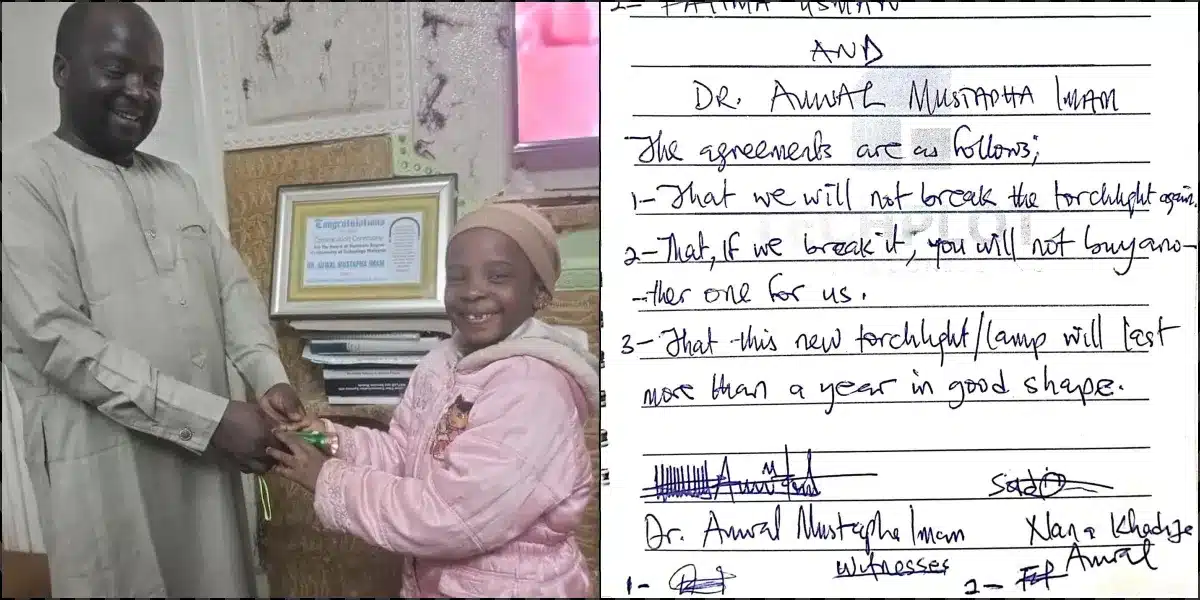 Congratulations
Convocation Ceremony
DR. AUWAL MUSTAPHA IMAM
2- FATIMA USMAN
AND
DR. AUWAL MUSTAPHA IMAM
The agreements are as follows;
1- That we will not break the torchlight again.
2- That, If we break it, you will not buy ano-
-ther one for us.
3- That this new torchlight/lamp will last
more than a year in good shape.
Dr. Auwal Mustapha Imam
Nana Khadija
Auwal
Witnesses
1-
2-